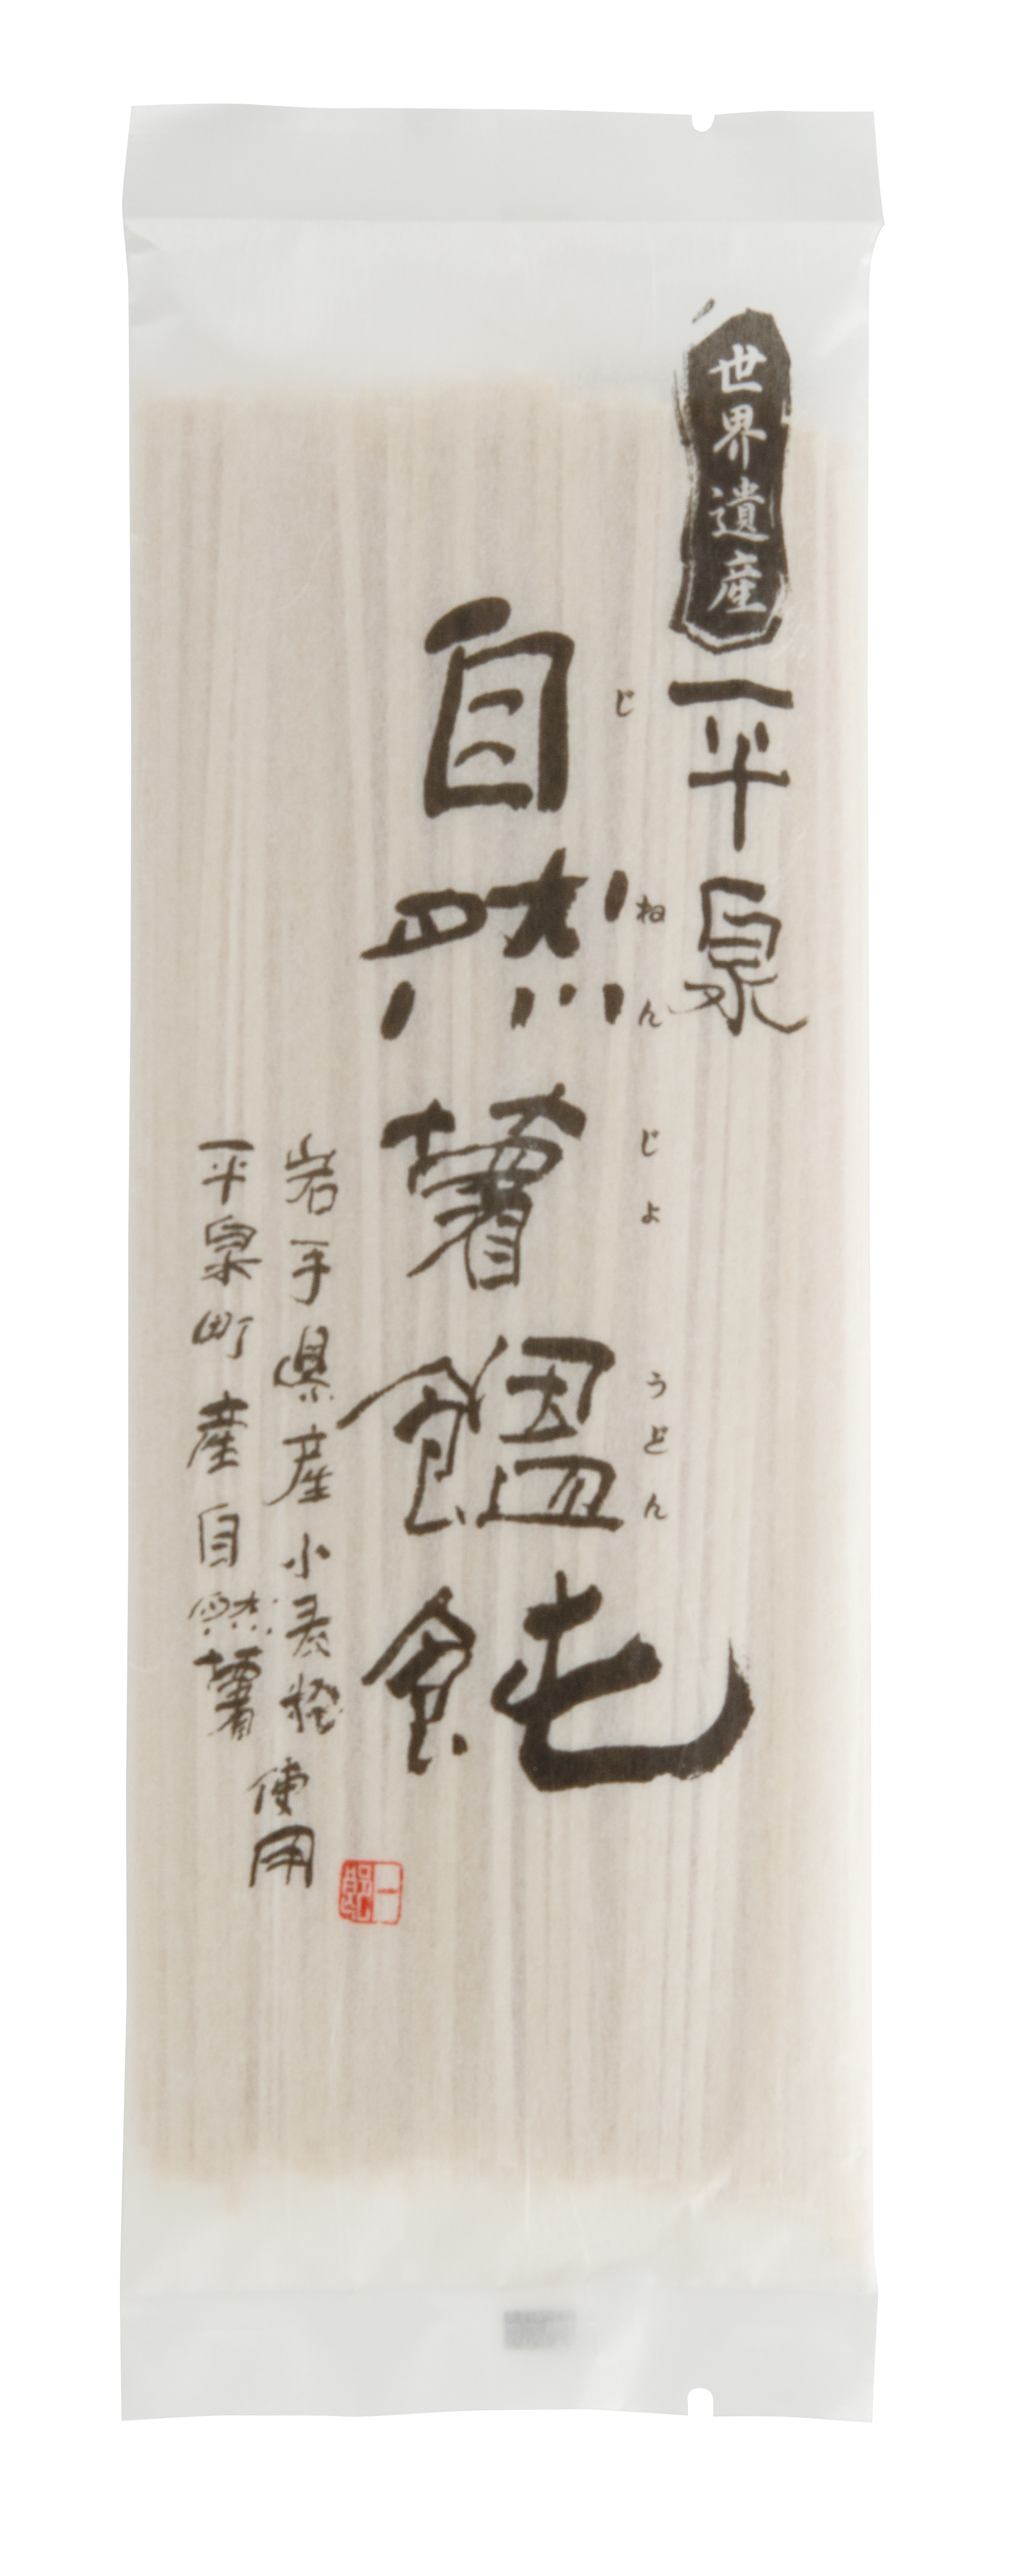 世界遺産
平泉
自然薯饂飩
じねんじょうどん
岩手県産小麦粉
平泉町産自然薯
使用